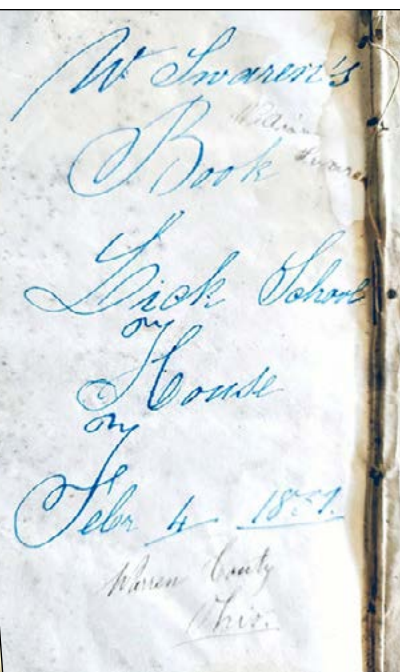 W Swaren's
William
Swaren
Book
Lick School
House
Febr 4 1851.
Warren County
Ohio.